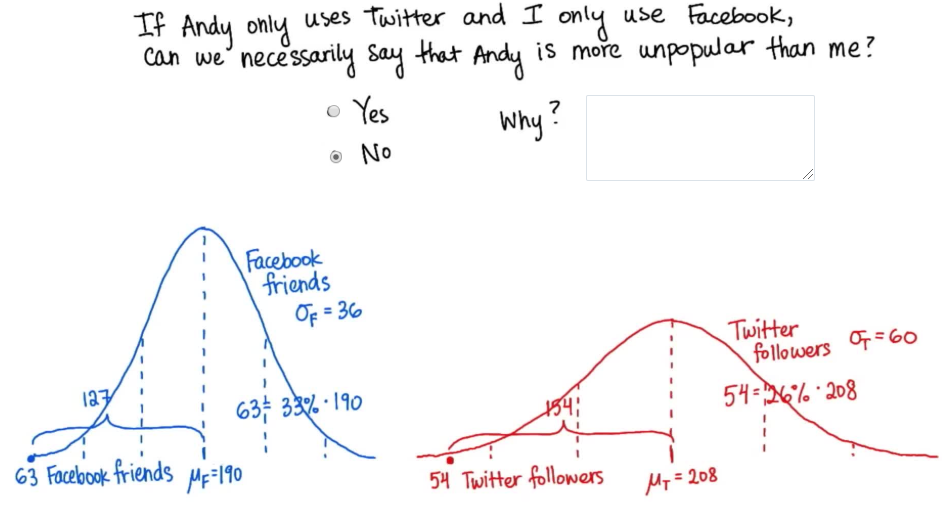 If Andy only uses Twitter and I only use Facebook,
can we necessarily say that Andy is more unpopular than me?
Yes
Why?
No
Facebook
friends
σF = 36
127
63 = 33% · 190
63 Facebook friends μF = 190
Twitter
followers σT = 60
54 = 26% · 208
154
54 Twitter followers μT = 208